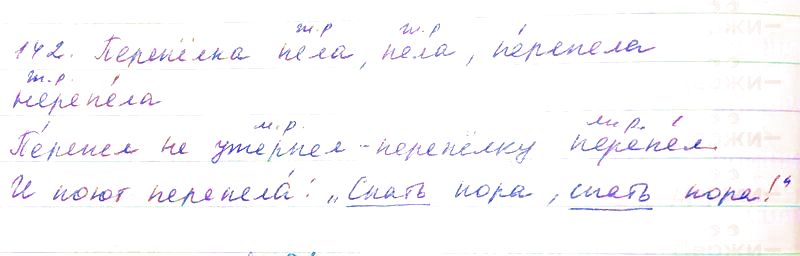 ж.р. ж.р.
142. Перепёлка пела, пела, перепела
ж.р.
не́репе́ла
м.р. м.р.
Пе́репел не уте́рпел - перепёлку перепе́л.
И поют перепела́: „Спать пора, спать пора!“